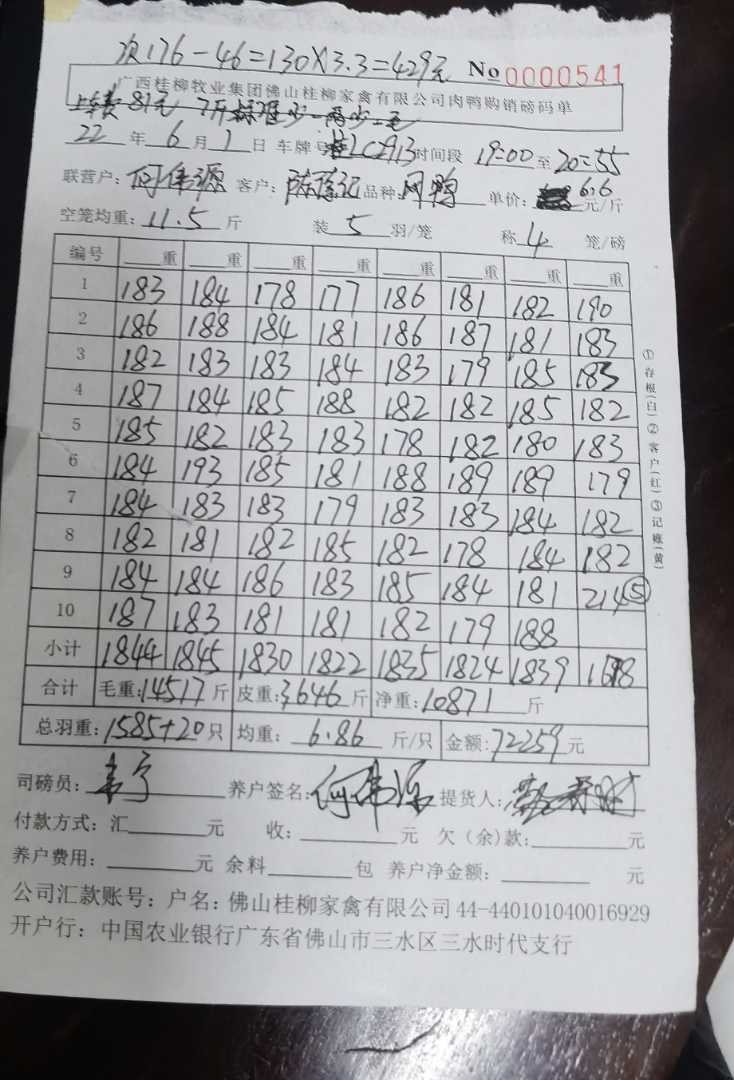 次176-46=130×3.3=429元 No 0000541
广西桂柳牧业集团佛山桂柳家禽有限公司肉鸭购销磅码单
上车费 81元
22 年 6 月 1 日 车牌号 LC2913 时间段 19:00 至 20:55
联营户: 何伟源 客户: 品种: 单价: 6.6 元/斤
空笼均重: 11.5 斤 装 5 羽/笼 称 4 笼/磅
编号 重 重 重 重 重 重 重 重
1 183 184 178 177 186 181 182 190
2 186 188 184 181 186 187 181 183
3 182 183 183 184 183 179 185 183
4 187 184 185 188 182 182 185 182
5 185 182 183 183 178 182 180 183
6 184 193 185 181 188 189 189 179
7 184 183 183 179 183 183 184 182
8 182 181 182 185 182 178 184 182
9 184 184 186 183 185 184 181 214⑤
10 187 183 181 181 182 179 188
小计 1844 1845 1830 1822 1835 1824 1839
合计 毛重: 14517 斤 皮重: 3646 斤 净重: 10871 斤
总羽重: 1585+20 只 均重: 6.86 斤/只 金额: 72259 元
司磅员: 养户签名: 何伟源 提货人:
付款方式: 汇 元 收: 元 欠(余)款: 元
养户费用: 元 余料 包 养户净金额: 元
公司汇款账号: 户名: 佛山桂柳家禽有限公司 44-440101040016929
开户行: 中国农业银行广东省佛山市三水区三水时代支行
①存根(白)②客户(红)③记账(黄)